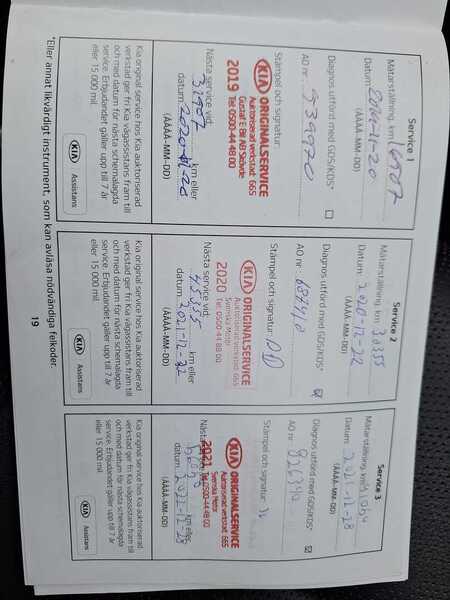 Service 1
Mätarställning, km 16707
Datum 2019-11-20
(ÅÅÅÅ-MM-DD)
Diagnos utförd med GDS/KDS*
AO nr
Stämpel och signatur:
KIA ORIGINALSERVICE
Auktoriserad verkstad: 665
Gustaf E Bil AB Skövde
2019 Tel: 0500-44 48 00
Nästa service vid:
31707 km eller
datum 2020-11-20
(ÅÅÅÅ-MM-DD)
Kia original service hos Kia auktoriserad
verkstad ger fri Kia vägassistans fram till
och med datum för nästa schemalagda
service. Erbjudandet gäller upp till 7 år
eller 15 000 mil.
KIA Assistans
Service 2
Mätarställning, km 30355
Datum 2020-12-22
(ÅÅÅÅ-MM-DD)
Diagnos utförd med GDS/KDS*
AO nr
Stämpel och signatur:
KIA ORIGINALSERVICE
Auktoriserad verkstad: 665
Svenska Motor
2020 Tel: 0500-44 88 00
Nästa service vid:
45355 km eller
datum 2021-12-22
(ÅÅÅÅ-MM-DD)
Kia original service hos Kia auktoriserad
verkstad ger fri Kia vägassistans fram till
och med datum för nästa schemalagda
service. Erbjudandet gäller upp till 7 år
eller 15 000 mil.
KIA Assistans
Service 3
Mätarställning, km
Datum 2021-12-28
(ÅÅÅÅ-MM-DD)
Diagnos utförd med GDS/KDS*
AO nr
Stämpel och signatur:
KIA ORIGINALSERVICE
Auktoriserad verkstad: 665
Svenska Motor
2021 Tel: 0500-44 48 00
km eller
datum 2022-12-28
(ÅÅÅÅ-MM-DD)
Kia original service hos Kia auktoriserad
verkstad ger fri Kia vägassistans fram till
och med datum för nästa schemalagda
service. Erbjudandet gäller upp till 7 år
eller 15 000 mil.
KIA Assistans
*Eller annat likvärdigt instrument, som kan avläsa nödvändiga felkoder.
19